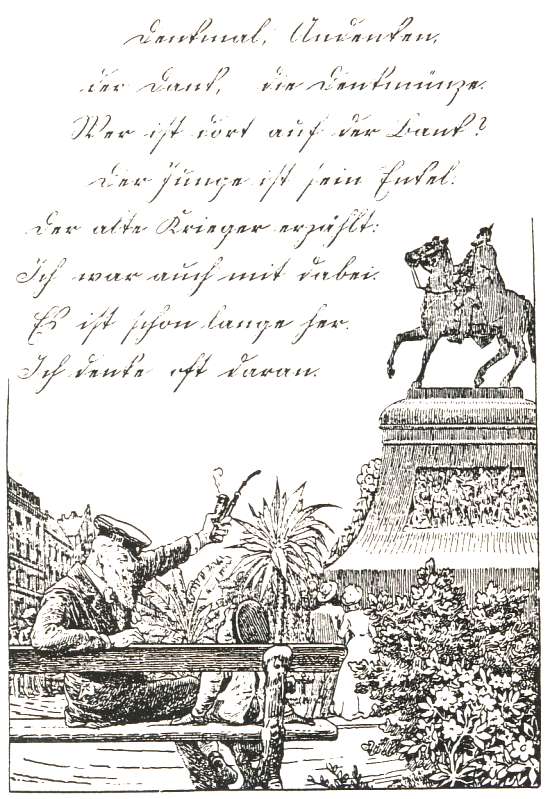 Denkmal, Andenken,
der Dank, die Denkmünze.
Wer ist dort auf der Bank?
Der Junge ist sein Enkel.
Der alte Krieger erzählt:
Ich war auch mit dabei.
Es ist schon lange her.
Ich denke oft daran.